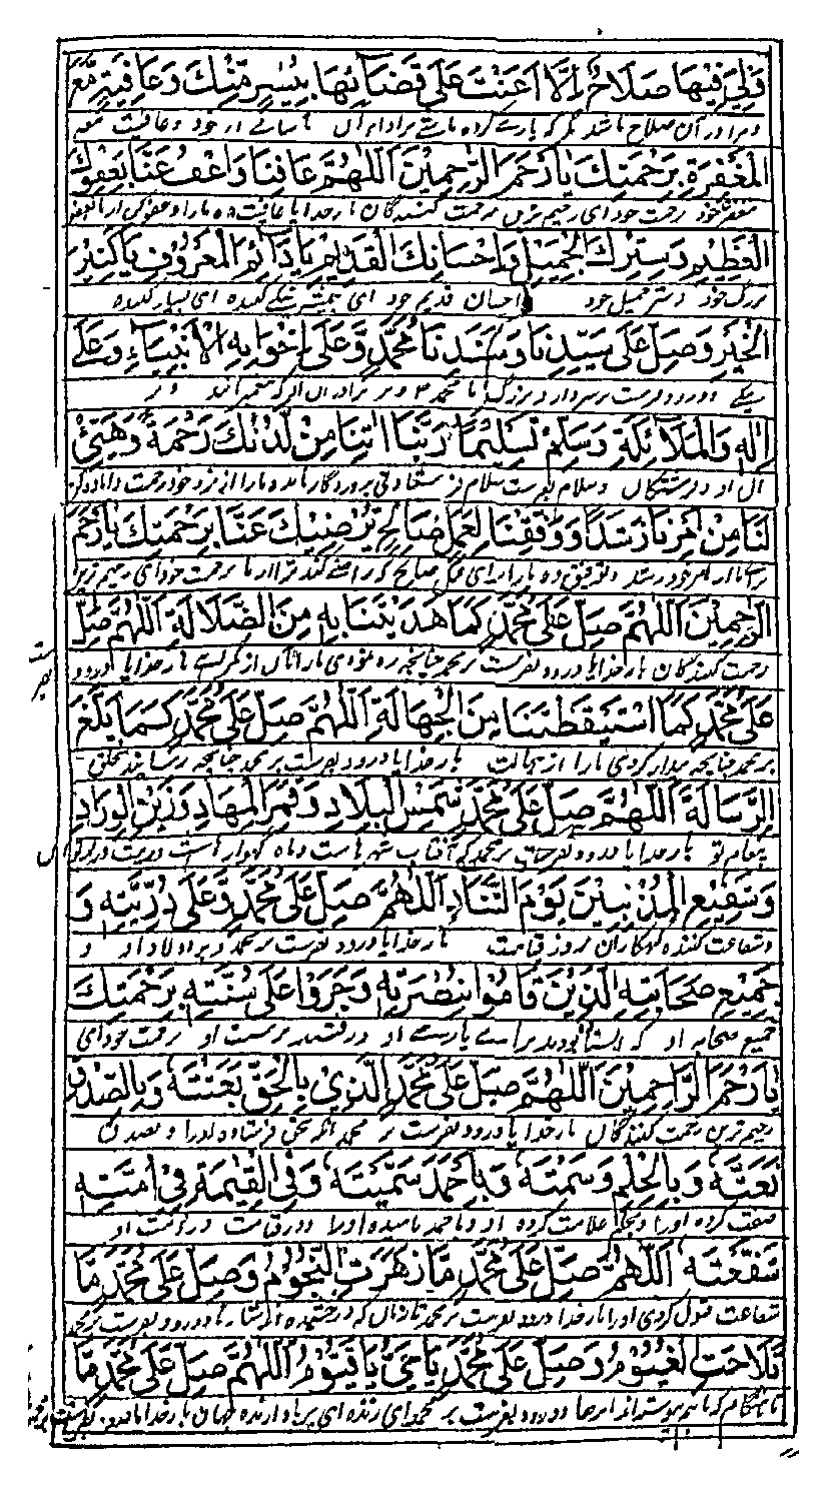 وَلِيَ فِيْهَا صَلَاحٌ اِلَّا اَعَنْتَ عَلٰى قَضَآئِهَا بِيُسْرٍ مِّنْكَ وَعَافِيَةٍ مَّعَ
ومرا در آن صلاح باشد مگر که یاری کرده بآسانی از خود و عافیت مع
الْمَغْفِرَةِ بِرَحْمَتِكَ يَا اَرْحَمَ الرَّاحِمِيْنَ اَللّٰهُمَّ عَافِنَا وَاعْفُ عَنَّا بِعَفْوِكَ
مغفرت خود برحمت خود ای رحیم ترین رحمت کنندگان بارخدایا عافیت ده مارا و عفو کن از ما بعفو
الْعَظِيْمِ وَسِتْرِكَ الْجَمِيْلِ وَاِحْسَانِكَ الْقَدِيْمِ يَا دَآئِمَ الْمَعْرُوْفِ يَا كَثِيْرَ
بزرگ خود و ستر جمیل خود و احسان قدیم خود ای همیشه نیکی کننده ای بسیار کننده
الْخَيْرِ وَصَلِّ عَلٰى سَيِّدِنَا وَسَنَدِنَا مُحَمَّدٍ وَّعَلٰى اِخْوَانِهِ الْاَنْبِيَآءِ وَعَلٰى
نیکی و درود فرست بر سردار و بزرگ ما محمد و بر برادران او که پیغمبرانند و بر
اٰلِهِ وَالْمَلَآئِكَةِ وَسَلِّمْ تَسْلِيْمًا رَبَّنَا اٰتِنَا مِنْ لَّدُنْكَ رَحْمَةً وَّهَيِّئْ
آل او و فرشتگان و سلام بفرست سلام فرستادنی پروردگارا بده مارا از نزد خود رحمت و آماده کن
لَنَا مِنْ اَمْرِنَا رَشَدًا وَّوَفِّقْنَا لِعَمَلٍ صَالِحٍ يُّرْضِيْكَ عَنَّا بِرَحْمَتِكَ يَا اَرْحَمَ
برای ما از امر خود رشد و توفیق ده مارا برای عمل صالح که راضی کند ترا از ما برحمت خود ای رحیم ترین
الرَّاحِمِيْنَ اَللّٰهُمَّ صَلِّ عَلٰى مُحَمَّدٍ كَمَا هَدَيْتَنَا بِهِ مِنَ الضَّلَالَةِ اَللّٰهُمَّ صَلِّ
رحمت کنندگان بارخدایا درود بفرست بر محمد چنانچه ره نمودی مارا بآن از گمراهی بارخدایا درود
عَلٰى مُحَمَّدٍ كَمَا اسْتَيْقَظْتَنَا مِنَ الْجَهَالَةِ اَللّٰهُمَّ صَلِّ عَلٰى مُحَمَّدٍ كَمَا بَلَّغَ
بر محمد چنانچه بیدار کردی مارا از جهالت بارخدایا درود بفرست بر محمد چنانچه رسانید بخلق
الرِّسَالَةَ اَللّٰهُمَّ صَلِّ عَلٰى مُحَمَّدٍ شَمْسِ الْبِلَادِ وَقَمَرِ الْمِهَادِ وَزَيْنِ الْوِرَادِ
پیغام تو بارخدایا درود بفرست بر محمد که آفتاب شهرهاست و ماه گهواره است و زینت
وَشَفِيْعِ الْمُذْنِبِيْنَ يَوْمَ التَّنَادِ اَللّٰهُمَّ صَلِّ عَلٰى مُحَمَّدٍ وَّعَلٰى ذُرِّيَّتِهِ وَ
وشفاعت کننده گنهکاران بروز قیامت بارخدایا درود بفرست بر محمد و بر اولاد او و
جَمِيْعِ صَحَابَتِهِ الَّذِيْنَ قَامُوْا بِنُصْرَتِهِ وَجَرَوْا عَلٰى سُنَّتِهِ بِرَحْمَتِكَ
جمیع صحابه او که ایستاده بودند برای یاری او و رفتند بر سنت او برحمت خود ای
يَا اَرْحَمَ الرَّاحِمِيْنَ اَللّٰهُمَّ صَلِّ عَلٰى مُحَمَّدٍ الَّذِيْ بِالْحَقِّ بَعَثْتَهُ وَبِالصِّدْقِ
رحیم ترین رحمت کنندگان بارخدایا درود بفرست بر محمد آنکه بحق فرستاده او را و بصدق
نَعَتَّهُ وَبِالْحِلْمِ وَسَمْتَهُ وَبِاَحْمَدَ سَمَّيْتَهُ وَفِي الْقِيٰمَةِ فِيْ اُمَّتِهِ
صفت کرده او را و بحلم علامت کرده او و باحمد نامیده او را و در قیامت در امت او
شَفَّعْتَهُ اَللّٰهُمَّ صَلِّ عَلٰى مُحَمَّدٍ مَّا زَهَرَتِ النُّجُوْمُ وَصَلِّ عَلٰى مُحَمَّدٍ مَّا
شفاعت قبول کردی او را بارخدایا درود بفرست بر محمد تا زمان که درخشنده اند ستارها و درود بفرست بر محمد
تَلَاحَتِ الْغُيُوْمُ وَصَلِّ عَلٰى مُحَمَّدٍ يَا حَيُّ يَا قَيُّوْمُ اَللّٰهُمَّ صَلِّ عَلٰى مُحَمَّدٍ مَّا
تا هنگام که باهم پیوسته اند ابرها و درود بفرست بر محمد ای زنده ای برپا دارنده جهان بارخدایا درود بفرست بر محمد